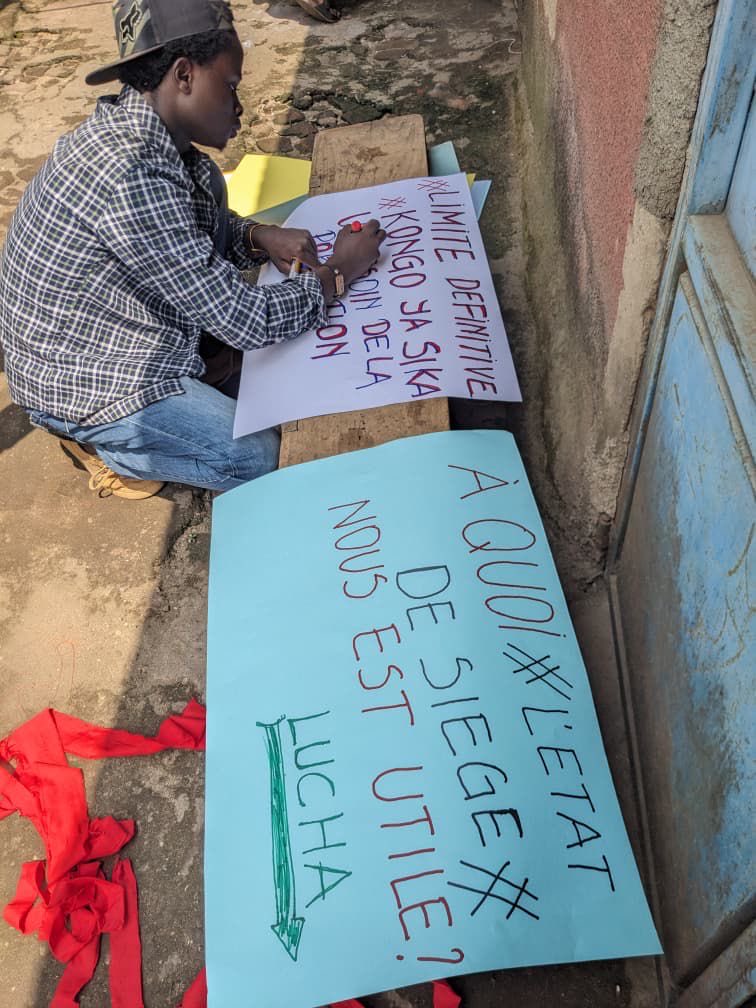 #LIMITE DEFINITIVE
#KONGO YA SIKA
DE LA
À QUOi #L'ETAT
DE SIEGE#
NOUS EST UTILE?
LUCHA